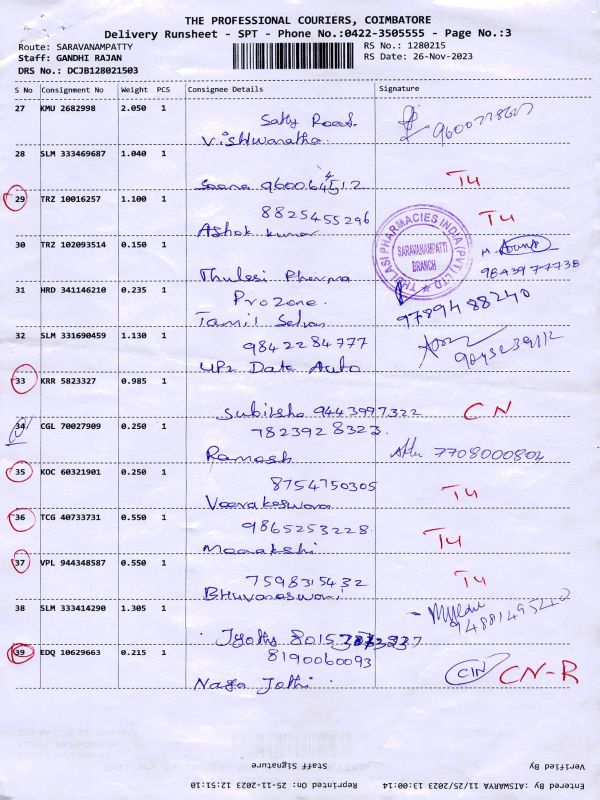 THE PROFESSIONAL COURIERS, COIMBATORE
Delivery Runsheet - SPT - Phone No.:0422-3505555 - Page No.:3
Route: SARAVANAMPATTY
RS No.: 1280215
Staff: GANDHI RAJAN
RS Date: 26-Nov-2023
DRS No.: DCJB128021503
S No Consignment No Weight PCS Consignee Details Signature
27 KMU 2682998 2.050 1
Sathy Road.
Vishwanatha
28 SLM 333469687 1.040 1
9600645512 T4
29 TRZ 10016257 1.100 1
8825455296 T4
Ashok kumar
THULASI PHARMACIES INDIA (PVT) LTD
SARAVANAMPATTI
BRANCH
30 TRZ 102093514 0.150 1
9843977738
Thulasi Pharma
31 HRD 341146210 0.235 1
Prozone.
9789488240
Tamil Selvan
32 SLM 331690459 1.130 1
9842284777
UPz Data Auto
33 KRR 5823327 0.985 1
Subiksha 9443997322 CN
34 CGL 70027909 0.250 1
7823928323.
Ramesh 7708000802
35 KOC 60321901 0.250 1
8754750305
Veerakeswara T4
36 TCG 40733731 0.550 1
9865253228.
Meenakshi T4
37 VPL 944348587 0.550 1
7598315432 T4
Bhuvaneswari
38 SLM 333414290 1.305 1
94881495202
Jyothy
39 EDQ 10629663 0.215 1
8190060093
CIN CN-R
Naga Jothi
Verified By
Staff Signature
Entered By :AISWARYA 11/25/2023 13:00:14
Reprinted On: 25-11-2023 12:51:10